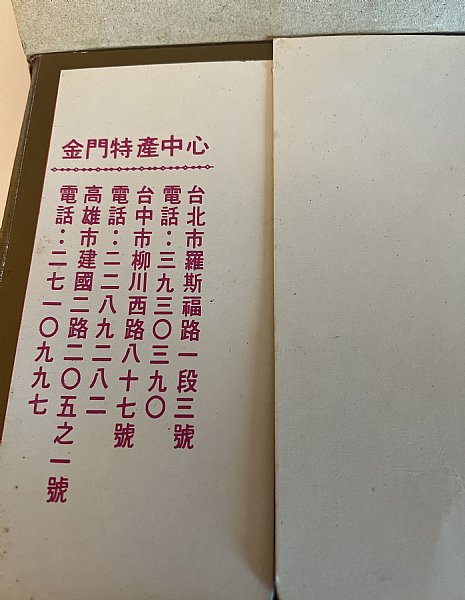 金門特產中心
台北市羅斯福路一段三號
電話：三九三〇三九〇
台中市柳川西路八十七號
電話：二二八九二八二
高雄市建國二路二〇五之一號
電話：二七一〇九九七